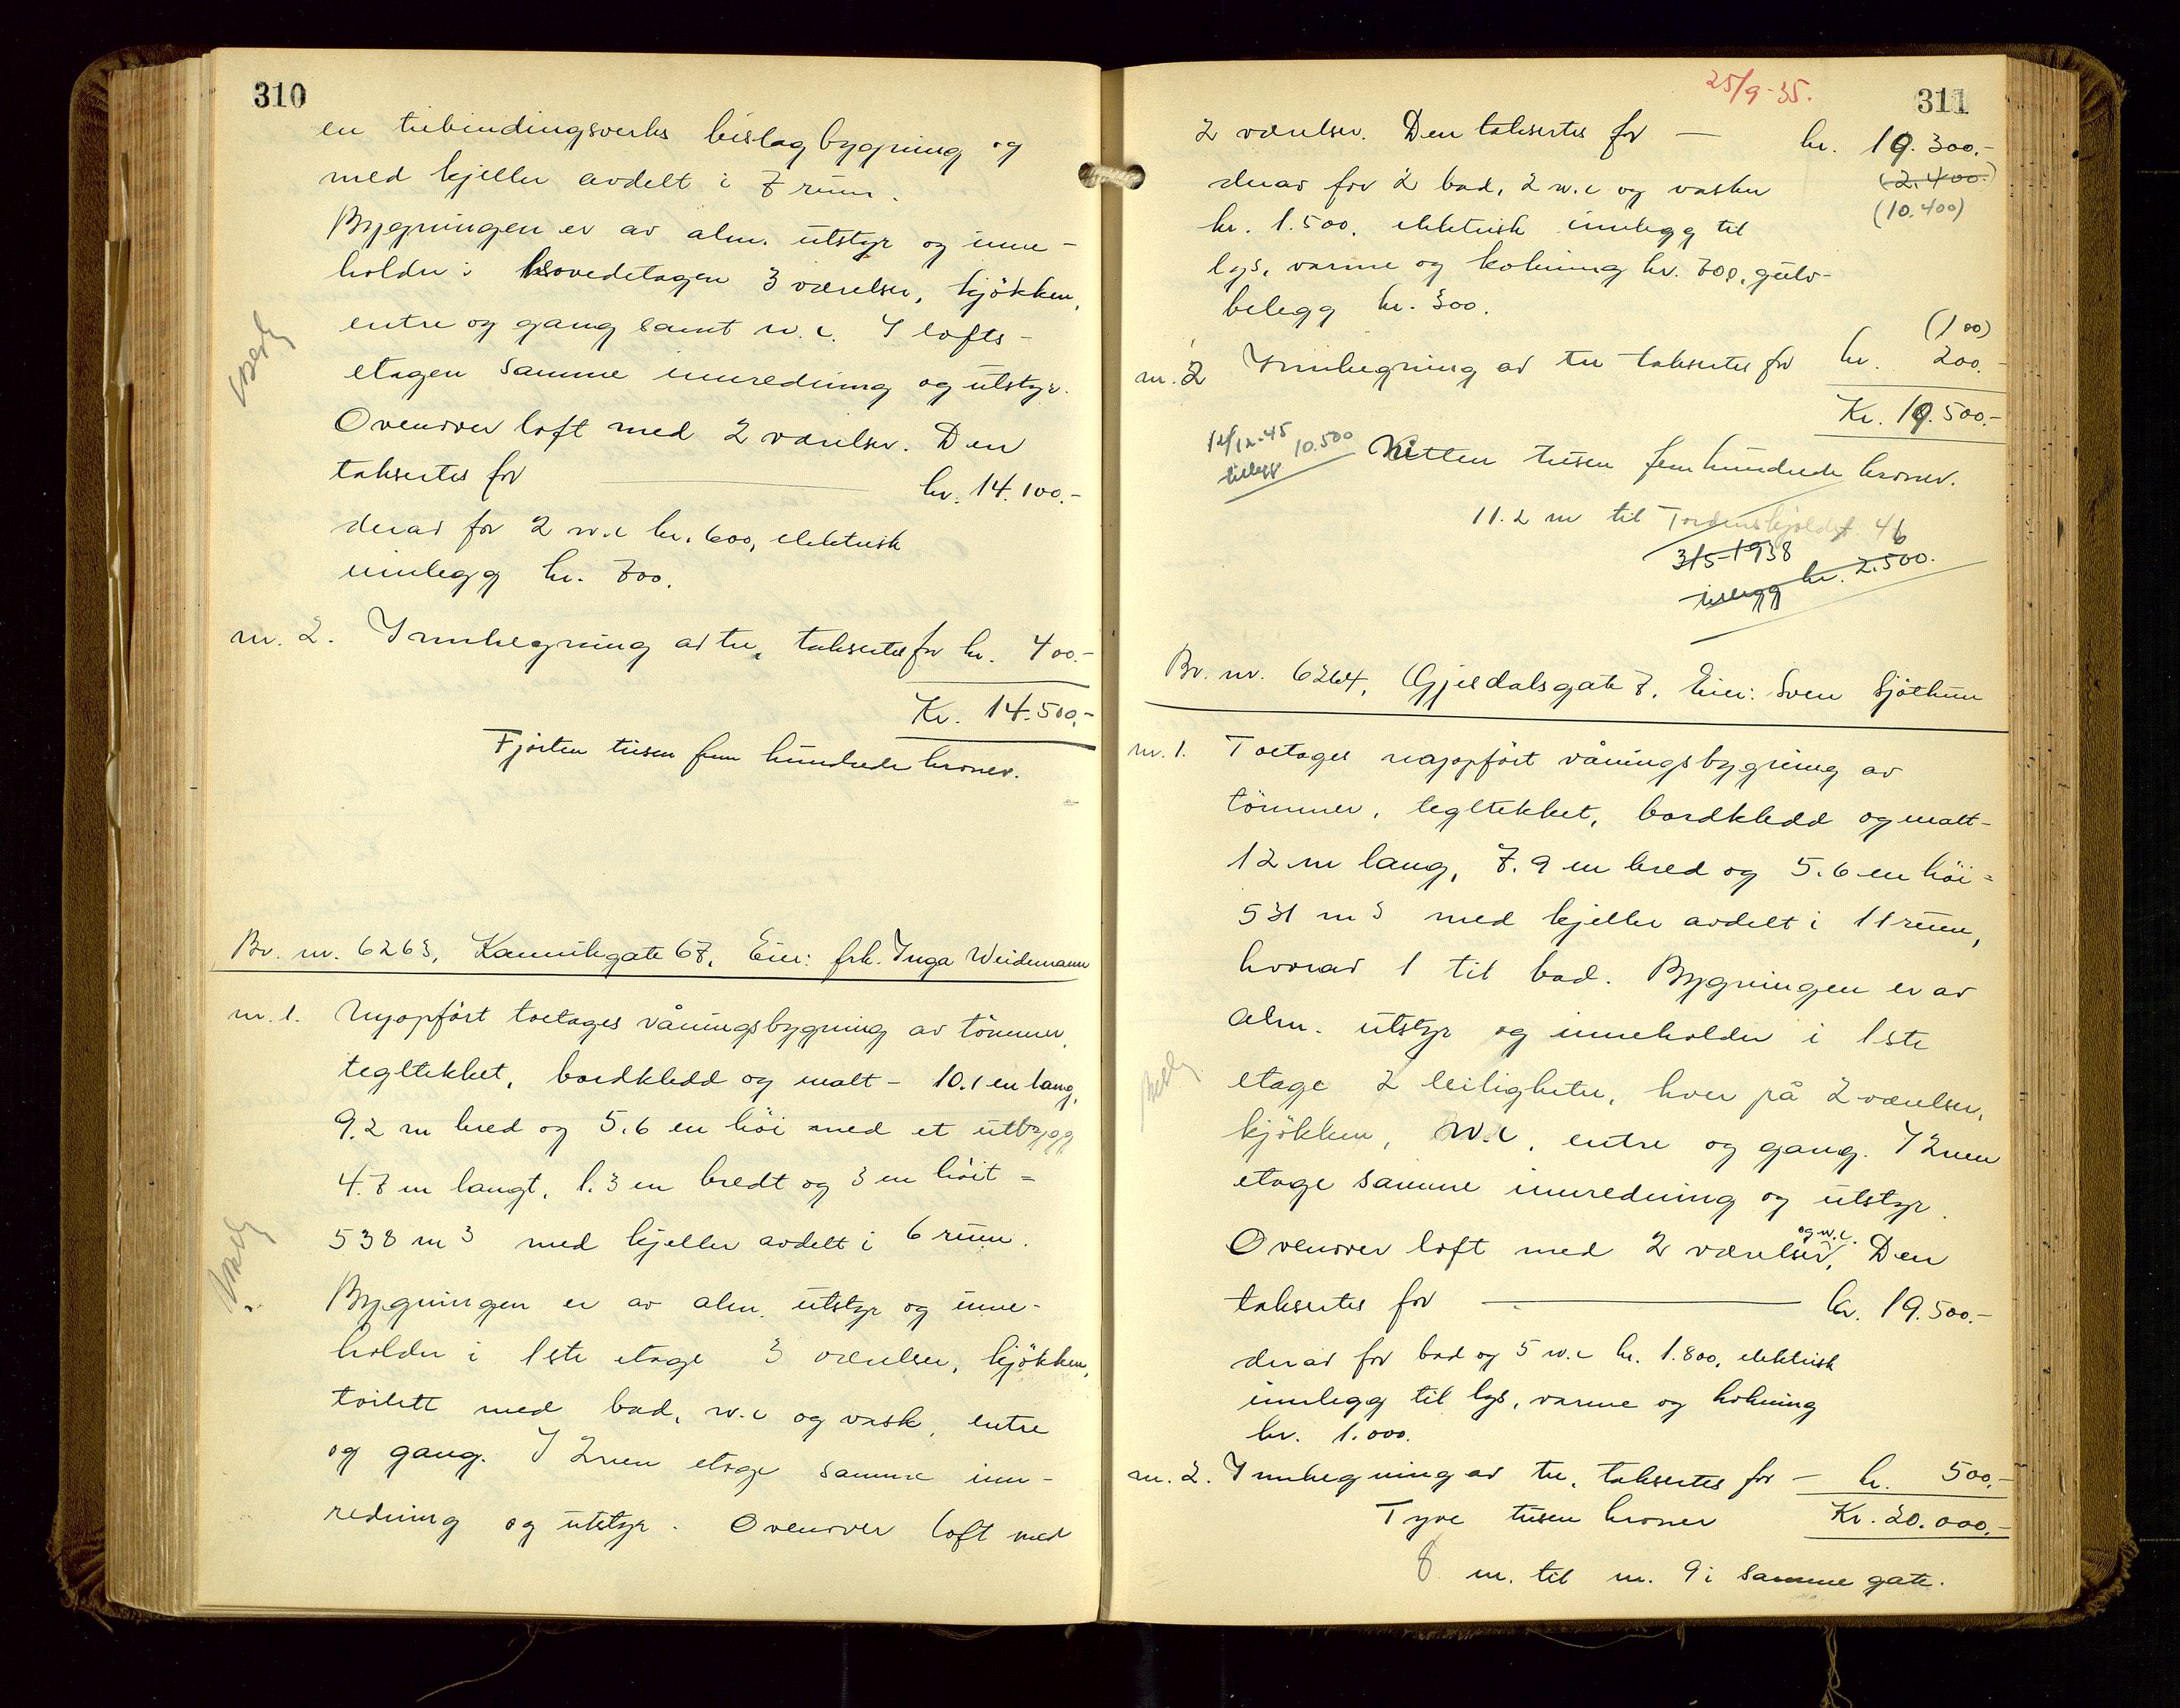 310
en utbindingsverks bislagbygning og
med kjeller avdelt i 7 rum.
Bygningen er av alm. utstyr og inne-
holder i hovedetagen 3 værelser, kjökken,
entre og gang samt w.c. I lofts-
etagen samme innredning og utstyr.
Ovenover loft med 2 værelser. Den
taksertes for kr. 14.100.-
derav for 2 w.c kr. 600, elektrisk
innlegg kr. 700.
nr. 2. Innhegning av tre, taksertes for kr. 400.-
Kr. 14.500.-
Fjorten tusen fem hundrede kroner.
Br. nr. 6263, Kannikgate 67, Eier: frk. Inga Weidemann
nr. 1. Nyopfört toetages våningsbygning av tömmer,
tegltekket, bordkledd og malt - 10.1 m lang,
9.2 m bred og 5.6 m höi med et utbygg
4.7 m langt, 1.3 m bredt og 3 m höit =
538 m3 med kjeller avdelt i 6 rum.
Bygningen er av alm. utstyr og inne-
holder i 1ste etage 3 værelser, kjökken,
toilett med bad, w.c og vask, entre
og gang. I 2nen etage samme inn-
redning og utstyr. Ovenover loft med
25/9-35.
311
2 værelser. Den taksertes for — kr. 19.300.-
(2.400.-)
(10.400)
derav for 2 bad, 2 w.c og vasker
kr. 1.500, elektrisk innlegg til
lys, varme og kokning kr. 700, gulv-
belegg kr. 300.
(100)
nr. 2 Innhegning av tre taksertes for kr. 200.-
Kr. 19.500.-
12/12-45
tillegg 10.500
Nitten tusen femhundrede kroner.
11.2 m til Tordenskjoldsgt. 46
3/5-1938
tillegg kr. 2.500.
Br. nr. 6264, Gjesdalsgate 7, Eier: Sven Sjöthun
nr. 1. Toetages nyopfört våningsbygning av
tömmer, tegltekket, bordkledd og malt-
12 m lang, 7.9 m bred og 5.6 m höi =
531 m3 med kjeller avdelt i 11 rum,
hvorav 1 til bad. Bygningen er av
alm. utstyr og inneholder i 1ste
etage 2 leiligheter, hver på 2 værelser,
kjökken, w.c, entre og gang. I 2nen
etage samme innredning og utstyr.
Ovenover loft med 2 værelser og w.c. Den
taksertes for — kr. 19.500.-
derav for bad og 5 w.c kr. 1.800, elektrisk
innlegg til lys, varme og kokning
kr. 1.000.
nr. 2. Innhegning av tre, taksertes for - kr. 500.-
Tyve tusen kroner Kr. 20.000.-
8 m. til nr. 9 i samme gate.